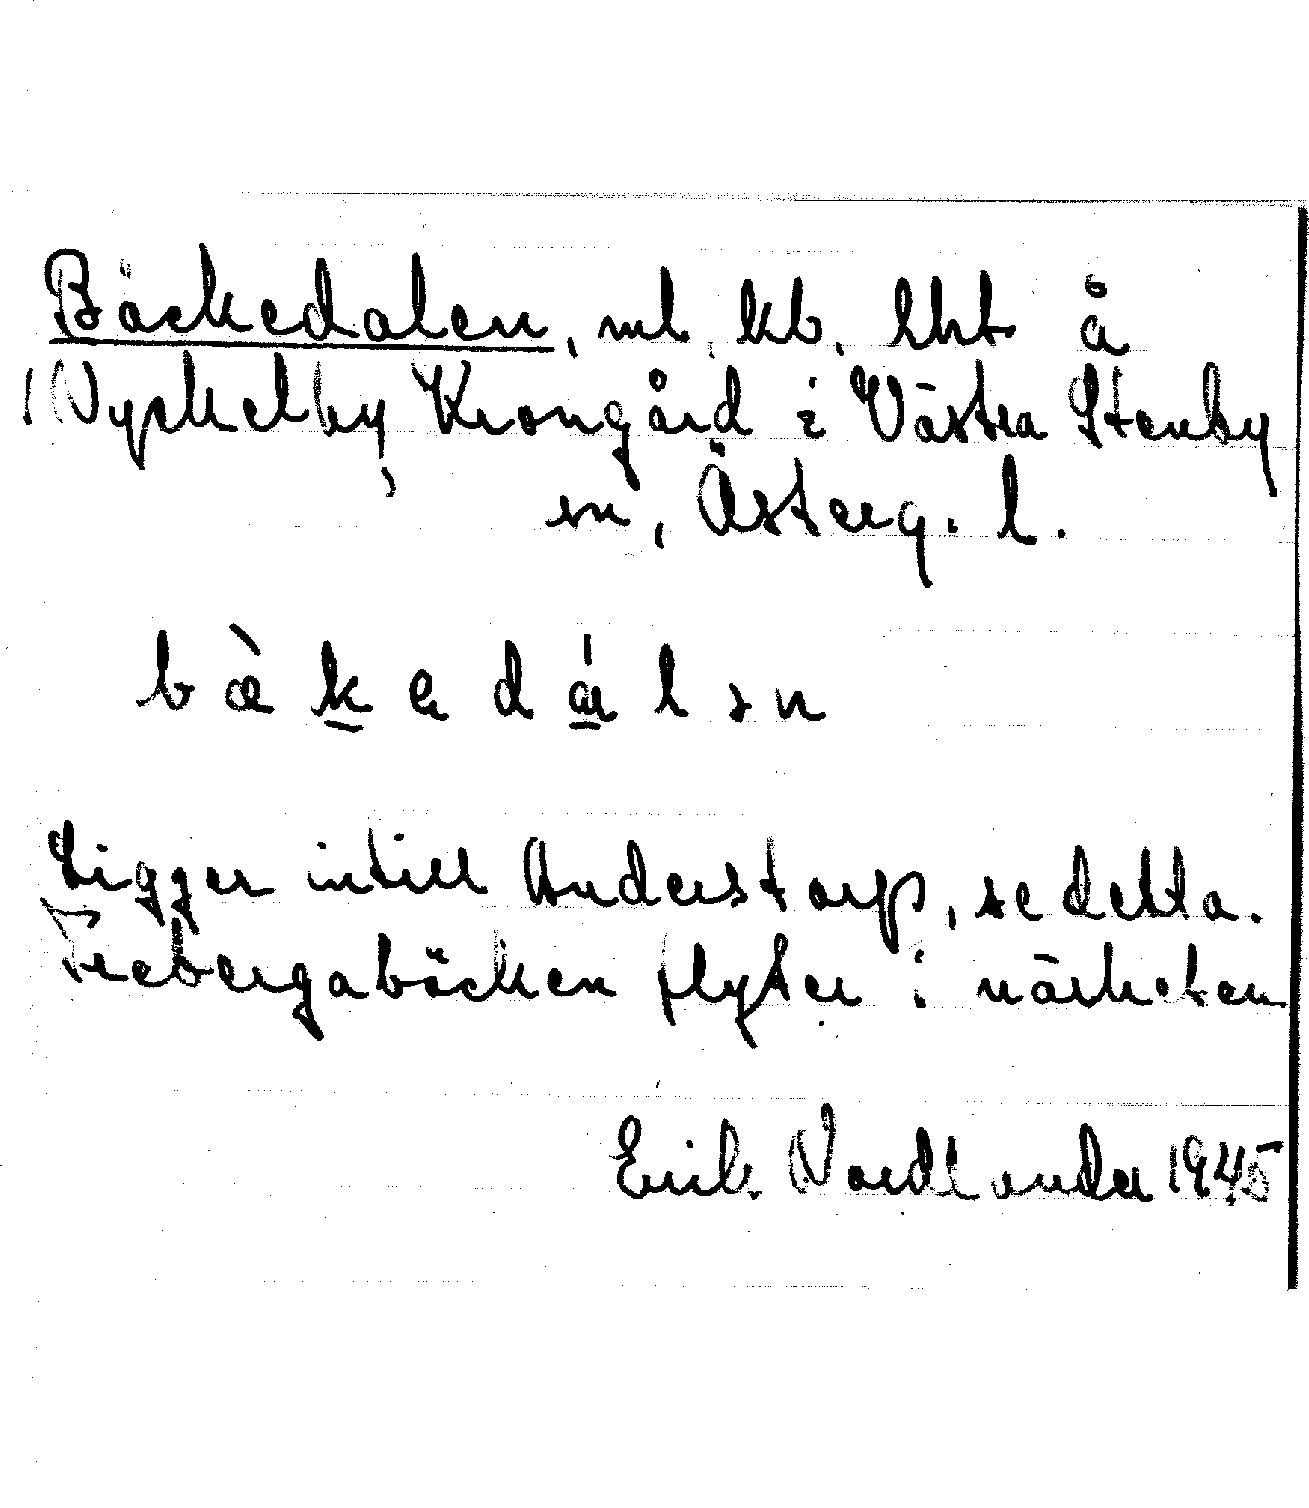 Bäckedalen, ml. kb. lht å
Nyckelby Krongård i Västra Stenby
sn, Österg. l.
bæ̀kedálən
Ligger intill Anderstorp, se detta.
Trebergabäcken flyter i närheten
Erik Nordlander 1945